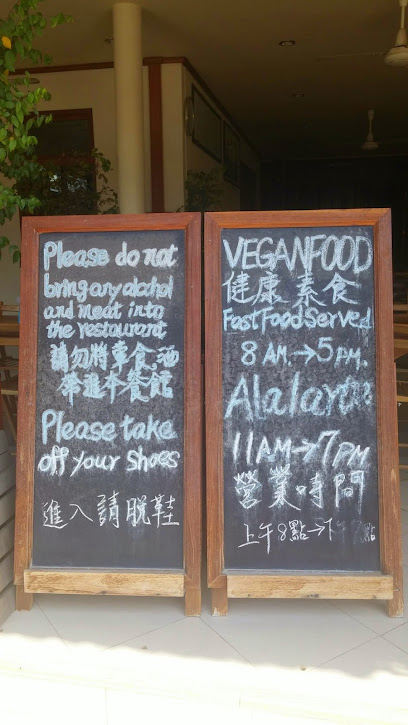 Please do not
bring any alcohol
and meat into
the restaurant
請勿將葷食酒
帶進本餐館
Please take
off your shoes
進入請脫鞋
VEGANFOOD
健康素食
Fast Food Served
8 AM.→5 PM.
11AM→7PM
營業時間
上午8點→下午7點